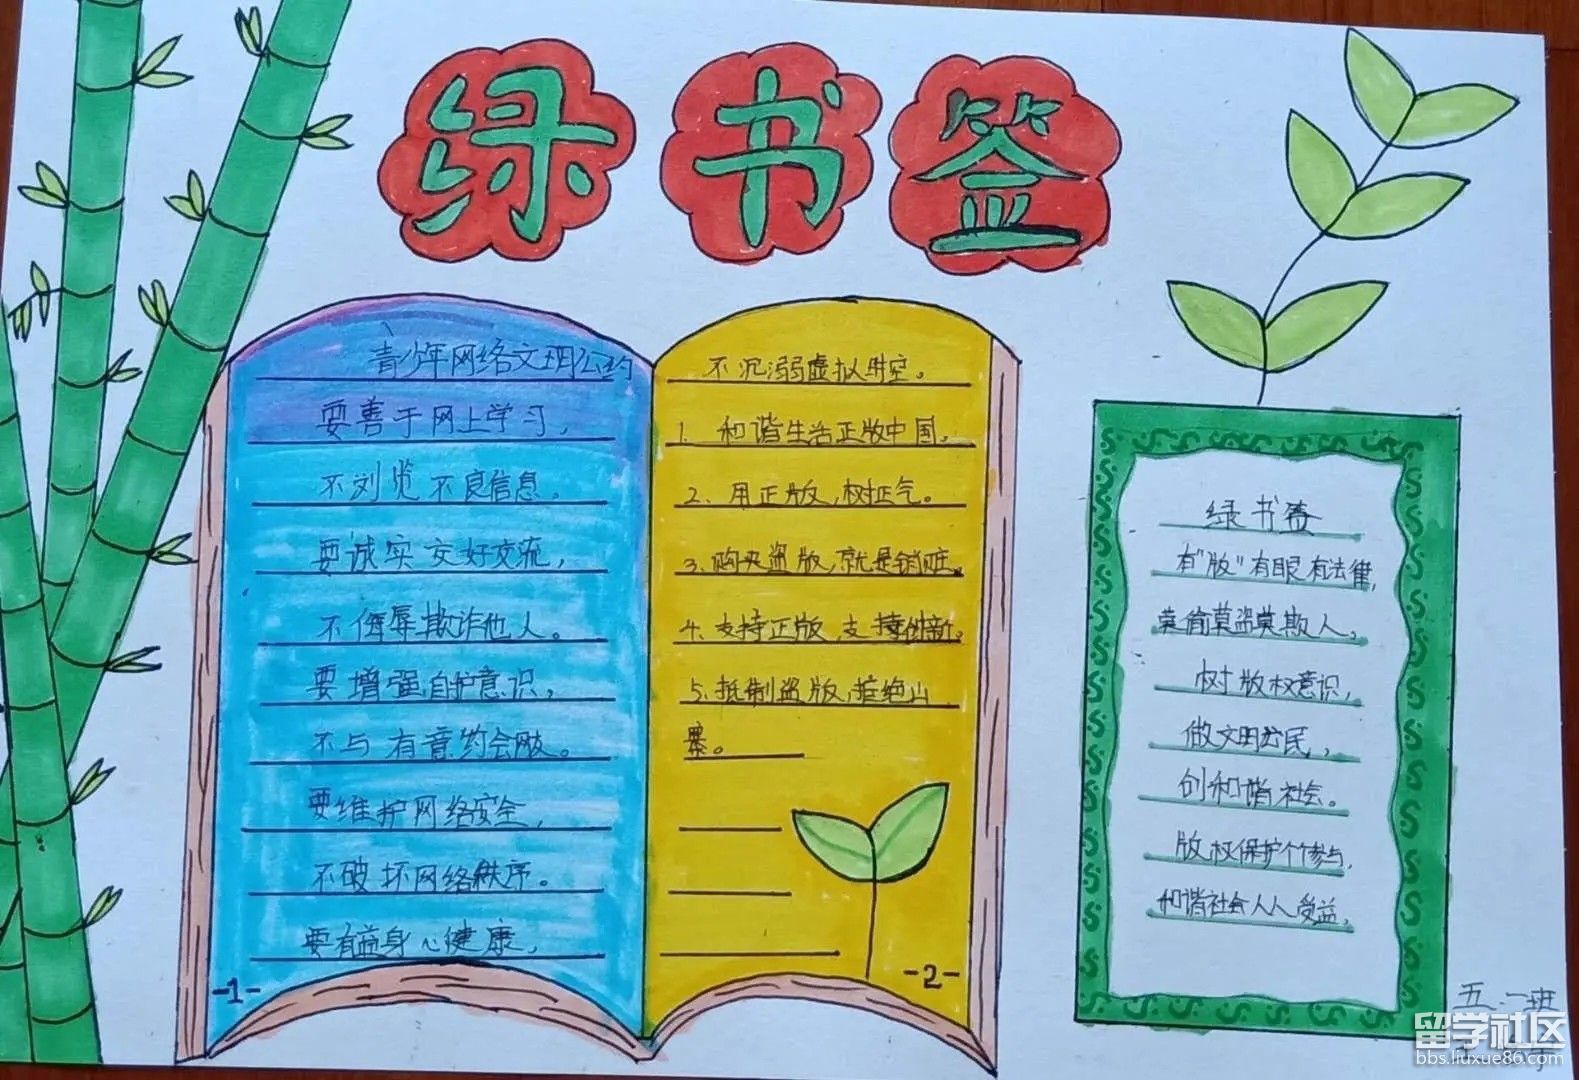 绿书签
青少年网络文明公约
要善于网上学习，
不浏览不良信息。
要诚实交好交流，
不侮辱欺诈他人。
要增强自护意识，
不与有意约会网友。
要维护网络安全，
不破坏网络秩序。
要有益身心健康，
-1-
不沉溺虚拟时空。
1. 和谐生活正版中国。
2、用正版，树正气。
3、购买盗版，就是销赃。
4、支持正版，支持创新。
5、抵制盗版，拒绝山
寨。
-2-
绿书签
有"版"有眼有法律，
莫偷莫盗莫欺人，
树版权意识，
做文明公民，
创和谐社会。
版权保护个个参与，
和谐社会人人受益，
五.一班
留学社区
bbs.liuxue86.com